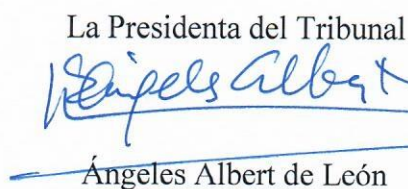 La Presidenta del Tribunal
Àngels Albert
Ángeles Albert de León